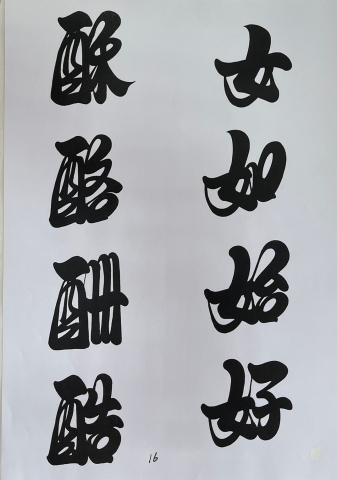 女如始好
酥酪酬酷
16